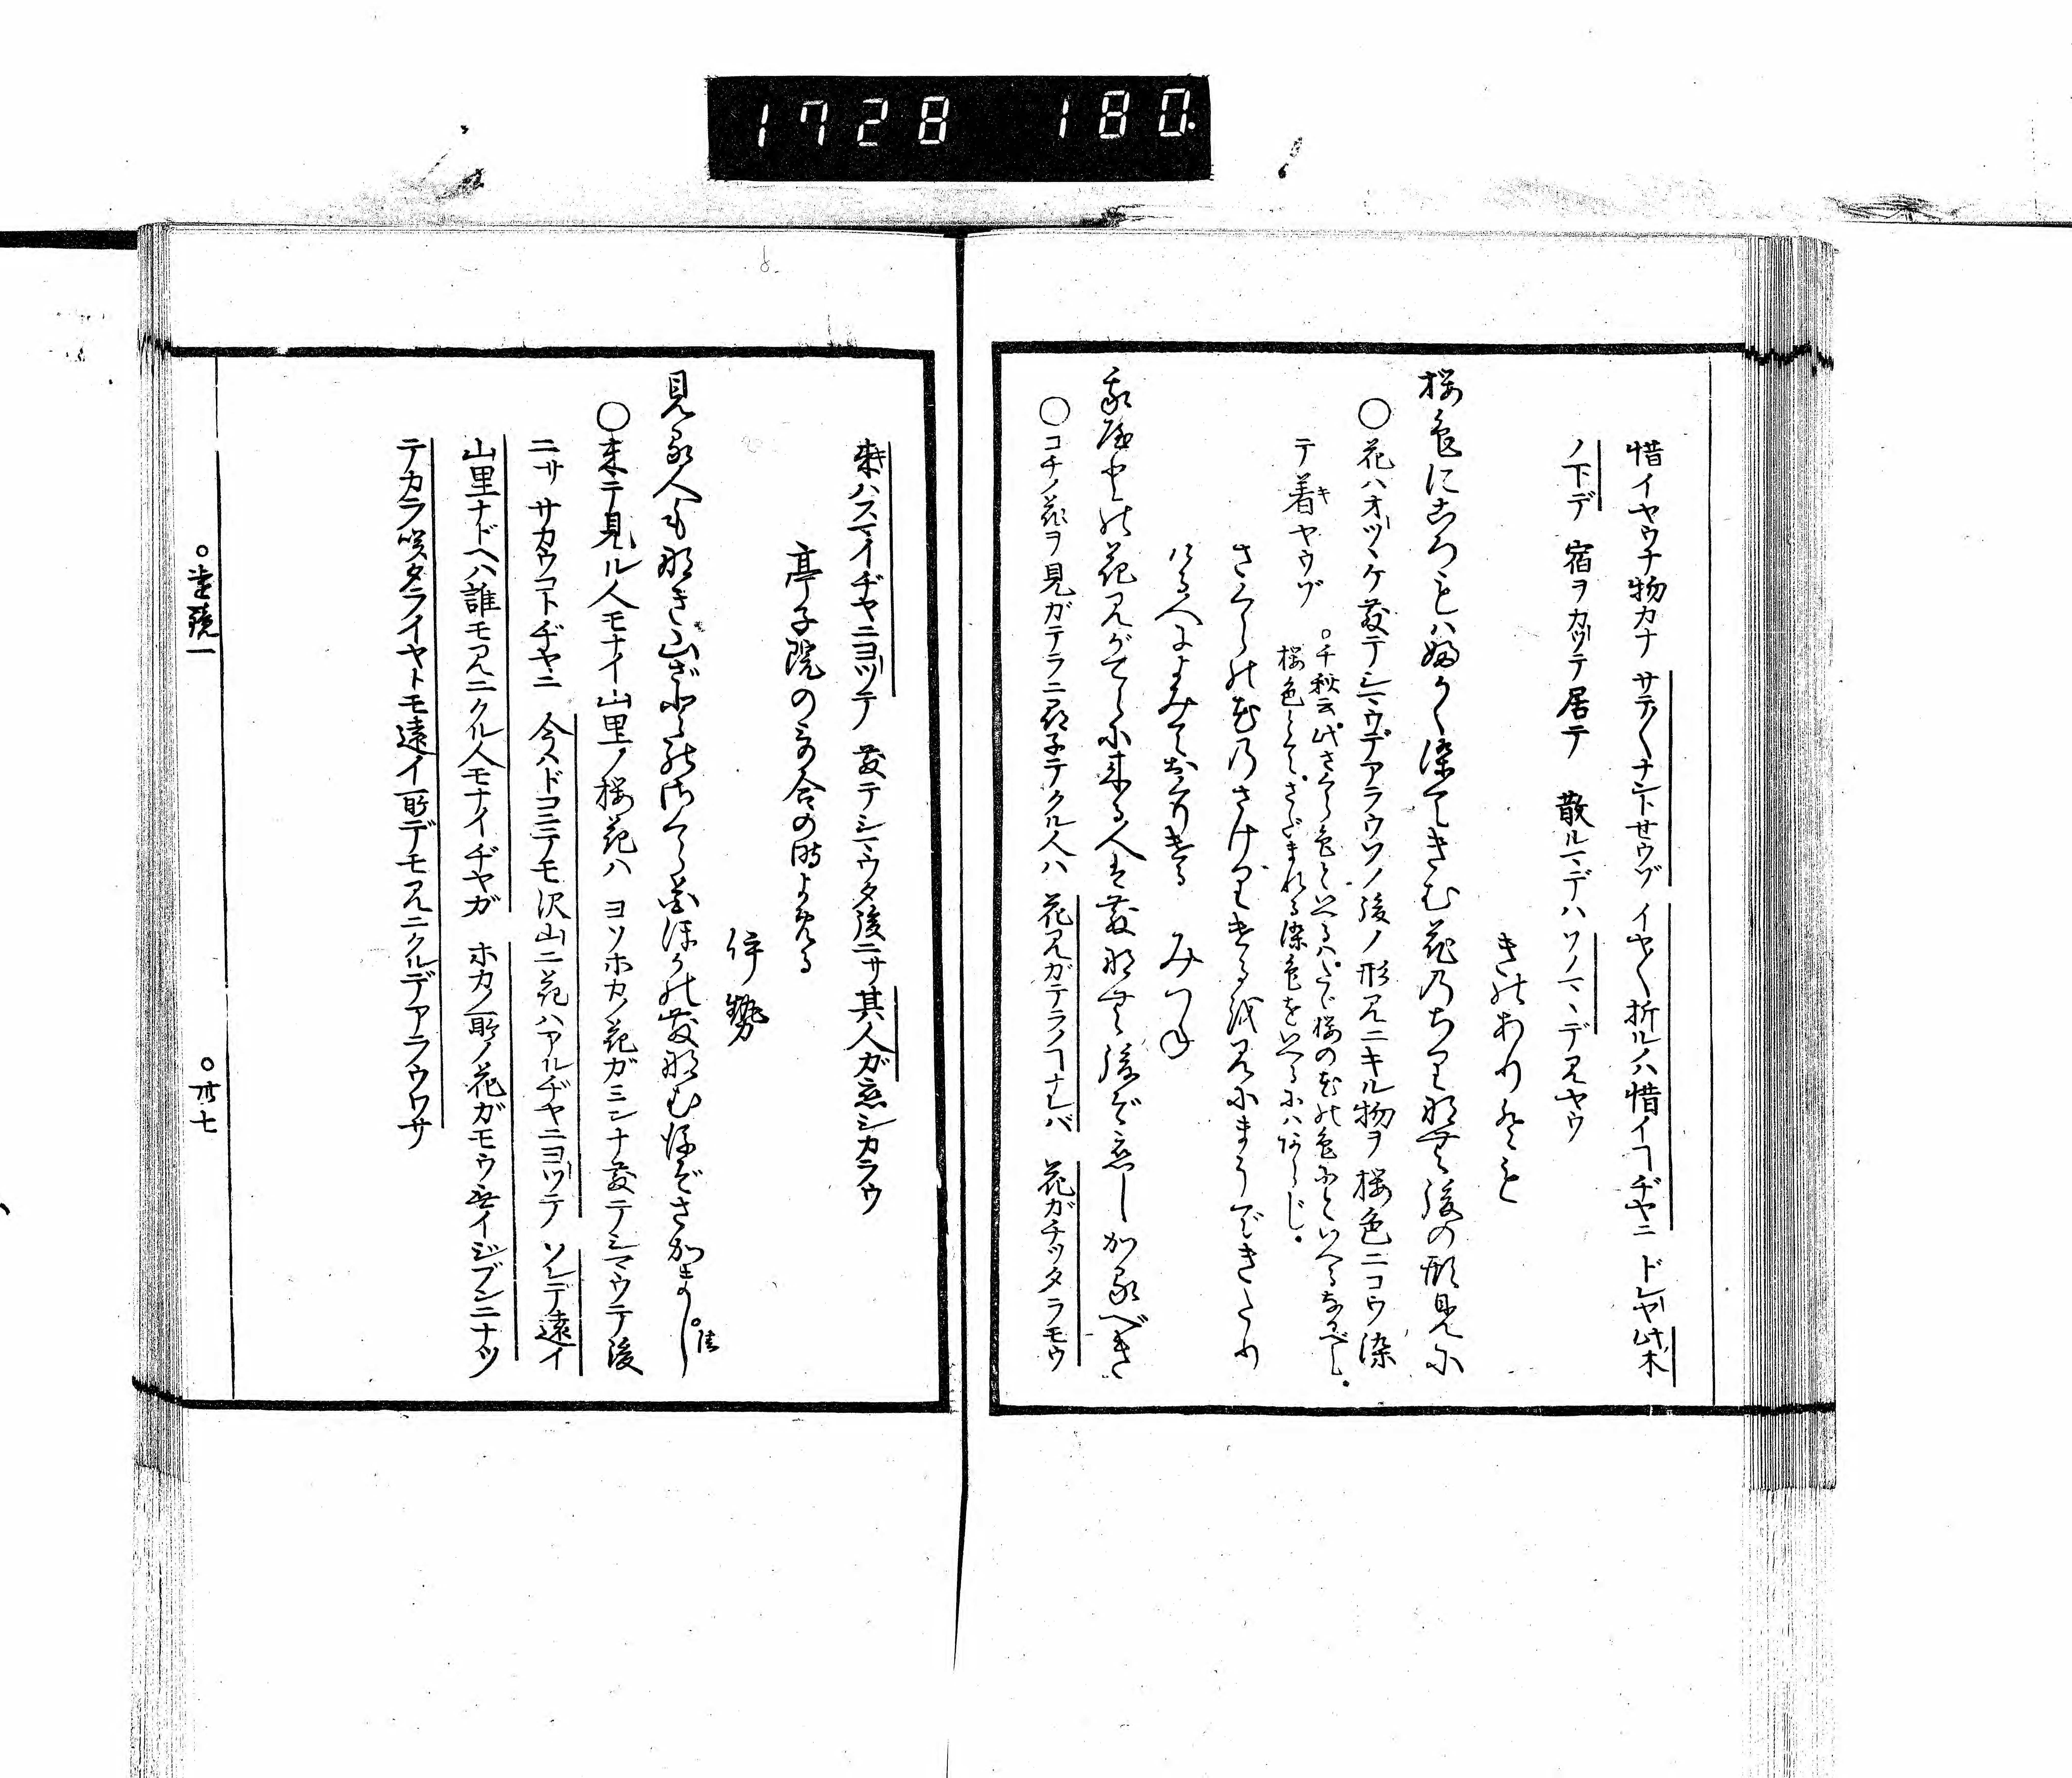 1728 180.
惜イヤウナ物カナ サテ〱ナントセウゾ イヤ〱折ルノハ惜イヿヂヤニ ドレヤ此木
ノ下デ 宿ヲカツテ居テ 散ルマデハソノマヽデ見ヤウ
きのありとも
桜色にころもはふかく染てきむ花のちりなむ後の形見に
○花ハオツヽケ散テシマウデアラウソノ後ノ形見ニキル物ヲ桜色ニコウ染
テ着ヤウゾ
○千秋云此さくら色といへるハたゞ桜の花の色ふといへるなるべし.
桜色とてさだまれる染色をいへるにハあらじ.
さくらの花のさけりけるを見にまうできたり
ける人によみておくりける みつね
我宿の花見がてらに来る人は散なむ後ぞ恋しかるべき
○コチノ花ヲ見ガテラニ尋子テクル人ハ 花見ガテラノヿナレバ 花ガチツタラモウ
来ハスマイヂヤニヨツテ 散テシマウタ後ニサ其人ガ恋シカラウ
亭子院の哥合の時よめる
伊勢
見る人もなき山ざとのさくら花ほかの散なむ後ぞさかまし
○来テ見ル人モナイ山里ノ桜花ハ ヨソホカノ花ガミンナ散テシマウテ後
ニサ サカウコトヂヤニ 今ハドコニテモ沢山ニ花ハアルヂヤニヨツテ ソレデ遠イ
山里ナドヘハ誰モ見ニクル人モナイヂヤガ ホカノ所ノ花ガモウ無イジブンニナツ
テカラ咲タライヤトモ遠イ所デモ見ニクルデアラウワサ
○遠鏡一 ○卅七